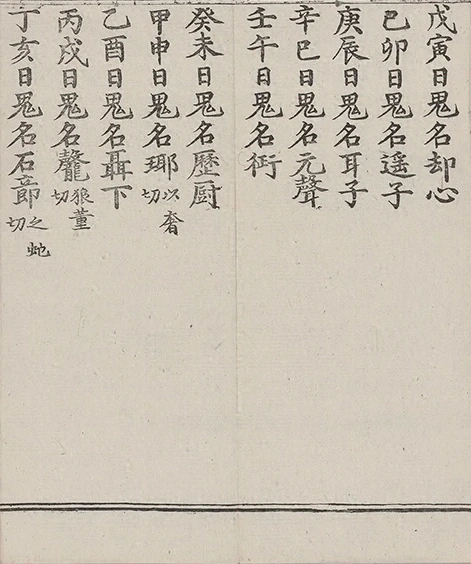 戊寅日鬼名却心
己卯日鬼名遥子
庚辰日鬼名耳子
辛巳日鬼名元聲
壬午日鬼名衍
癸未日鬼名歷厨
甲申日鬼名瑘以奢切
乙酉日鬼名聶下
丙戌日鬼名狼董切
丁亥日鬼名石節之虵切